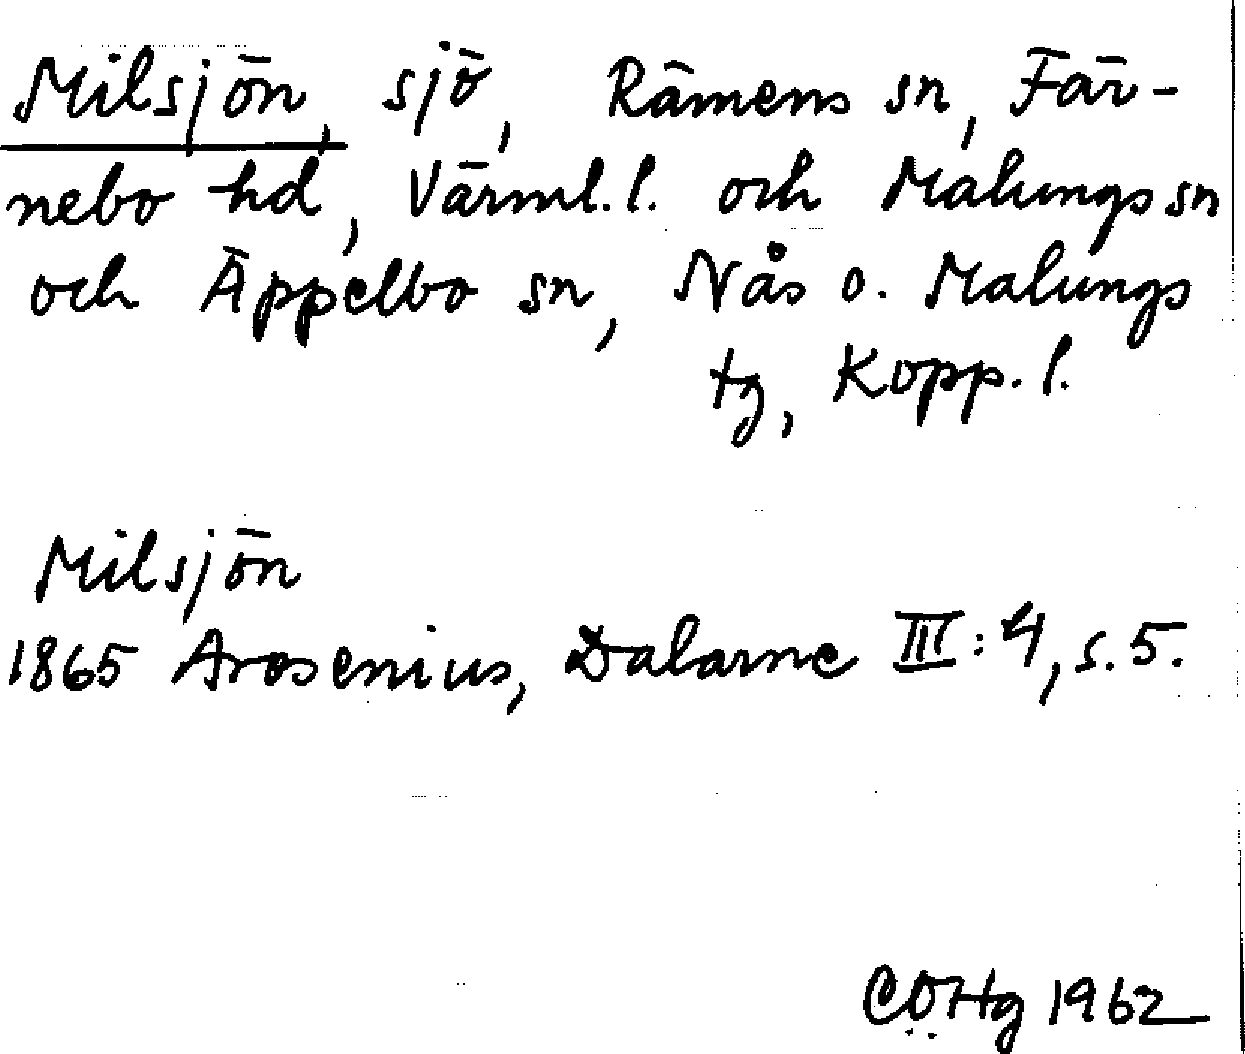 Milsjön, sjö, Rämens sn, Fär-
nebo hd, Värml. l. och Malungs sn
och Äppelbo sn, Nås o. Malungs
tg, Kopp. l.
Milsjön
1865 Arosenius, Dalarne III: 4, s. 5.
CÖHg 1962